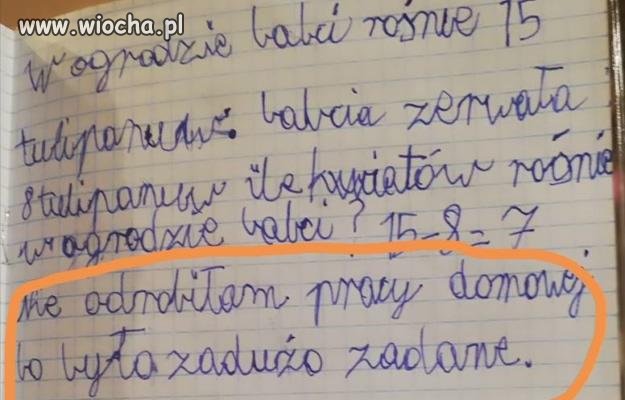 www.wiocha.pl
W ogrodzie babci rośnie 15
tulipanuw. babcia zerwała
8 tulipanuw ile kwiatów rośnie
w ogrodzie babci? 15-8=7
nie odrobiłam pracy domowej
bo było zadużo zadane.